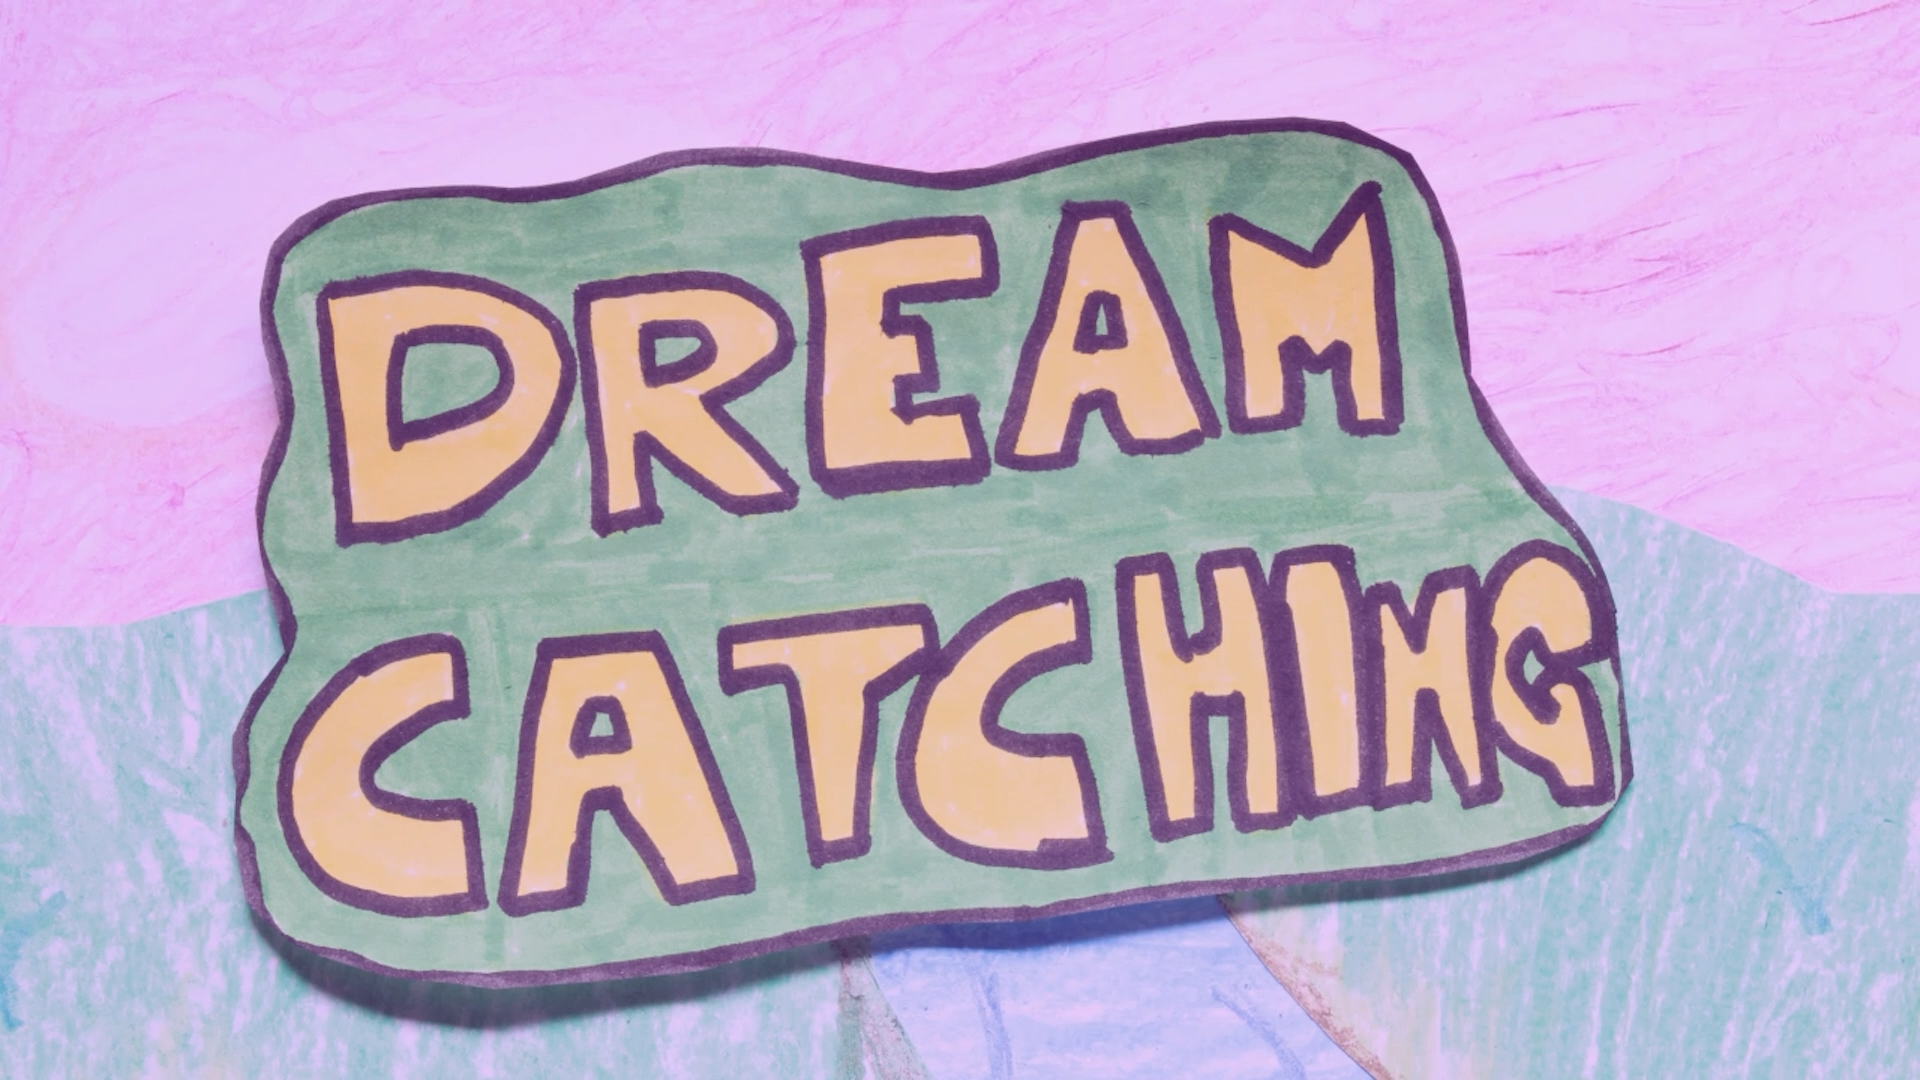 DREAM
CATCHING